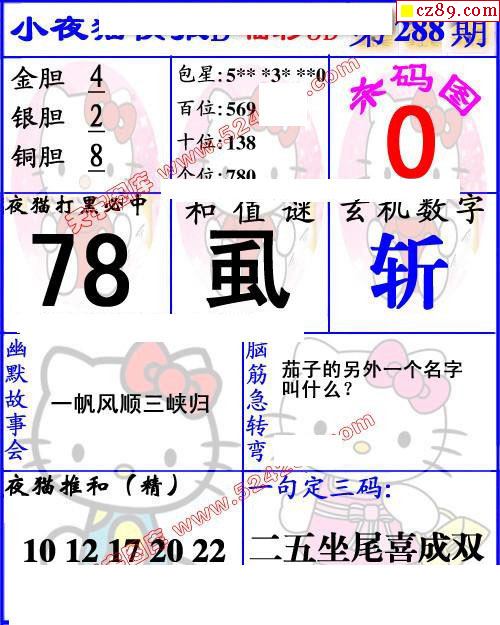 cz89.com
小夜猫
福彩3D
第288期
金胆 4
银胆 2
铜胆 8
包星:5** *3* **0
百位:569
十位:138
个位:780
杀码图
0
夜猫打黑必中
78
和值谜
虱
玄机数字
斩
幽默故事会
一帆风顺三峡归
脑筋急转弯
茄子的另外一个名字
叫什么?
夜猫推和(精)
10 12 17 20 22
一句定三码:
二五坐尾喜成双